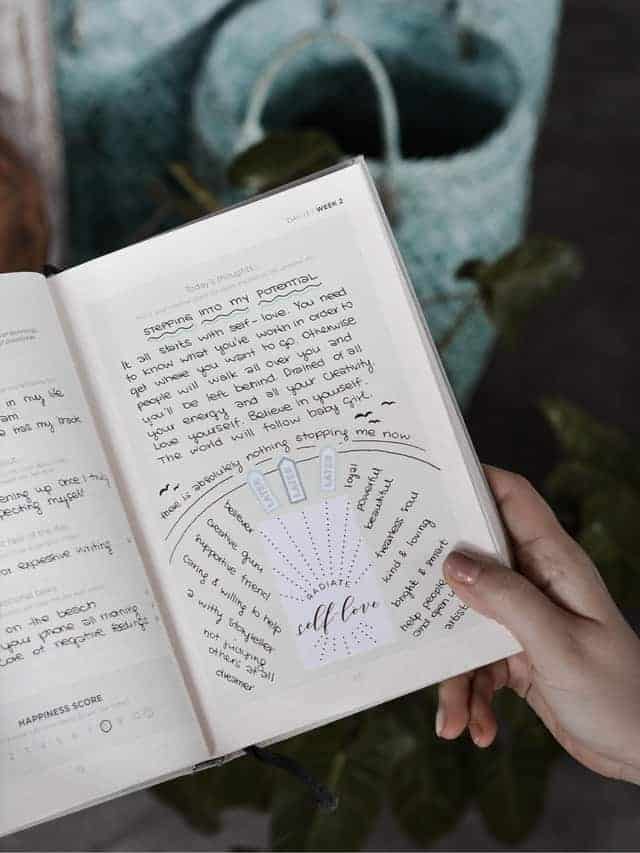 in my life
am
has my back
ening up once I truly
pecting myself
or expensive writing
on the beach
your phone all morning
of negative
HAPPINESS SCORE
WEEK 2
Today's thoughts
STEPPING INTO MY POTENTIAL
It all starts with self-love. You need
to know what you're worth in order to
get where you want to go. Otherwise
people will walk all over you and
you'll be left behind. Drained of all
your energy and all your creativity.
Love yourself. Believe in yourself.
The world will follow baby girl.
there is absolutely nothing stopping me now
LATER
LATER
LATER
believer
creative guru
supportive friend
caring & willing to help
a witty storyteller
not judging
others at all
dreamer
RADIATE
self love
loyal
powerful
beautiful
fearless soul
kind & loving
bright & smart
help people
and
artistic